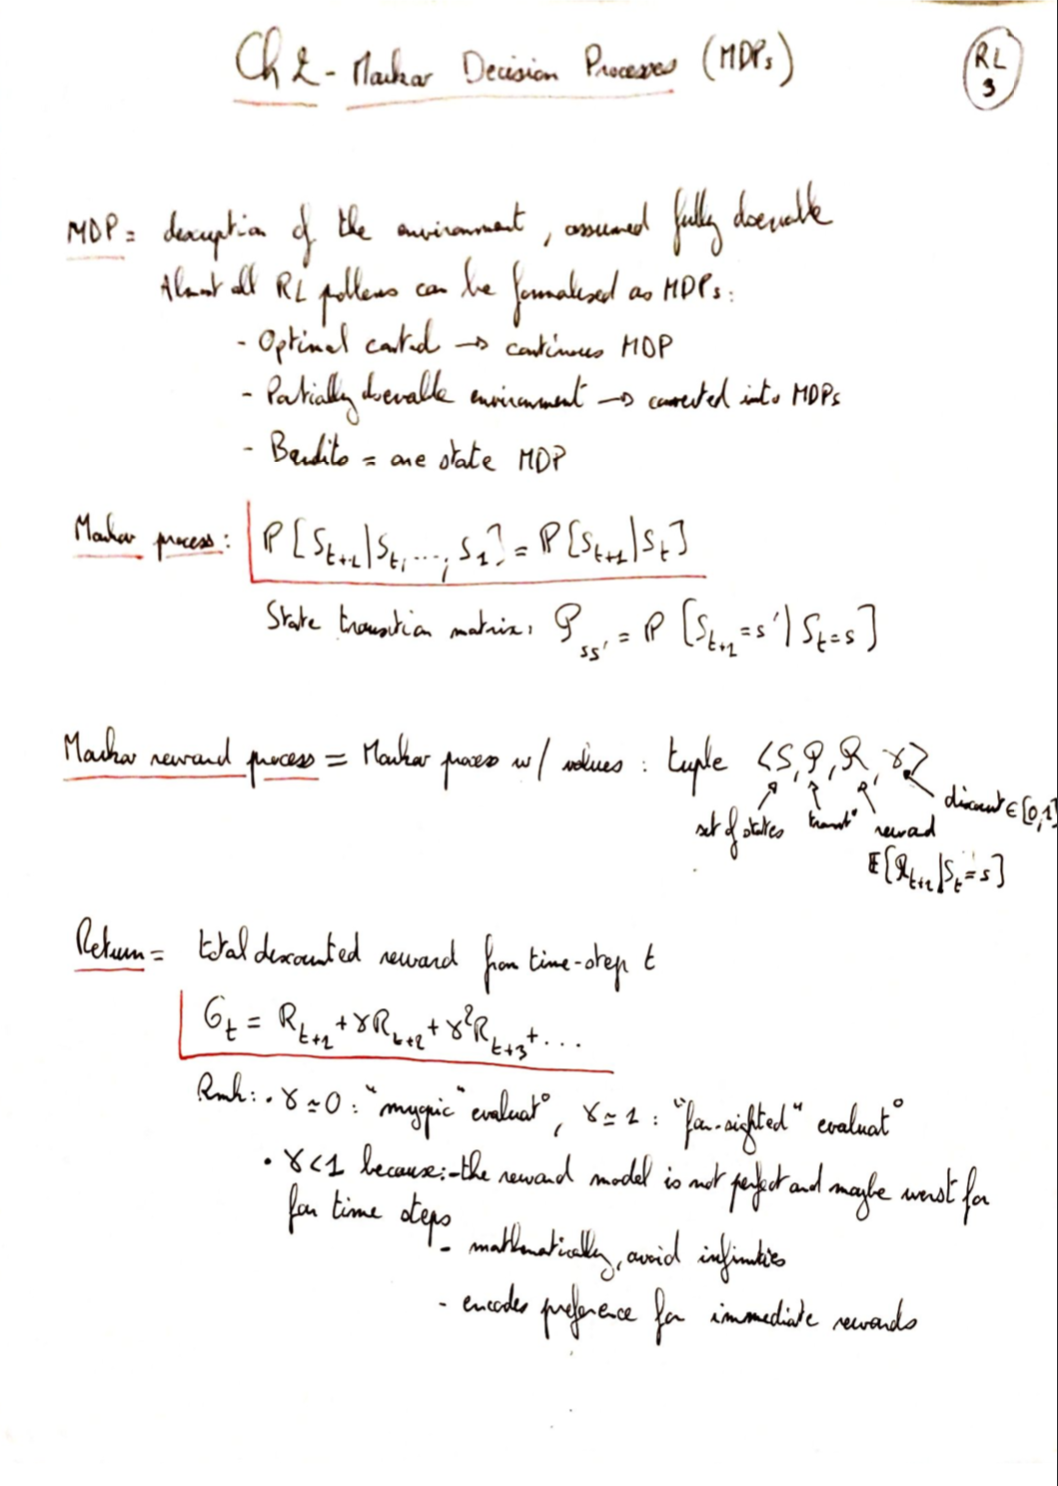 Ch 2 - Markov Decision Processes (MDPs)
RL
3
MDP = description of the environment, assumed fully observable
Almost all RL problems can be formalised as MDPs:
- Optimal control → continuous MDP
- Partially observable environment → converted into MDPs
- Bandits = one state MDP
Markov process: ℙ[S_{t+1}|S_t, ..., S_1] = ℙ[S_{t+1}|S_t]
State transition matrix: 𝒫_{ss'} = ℙ[S_{t+1}=s'|S_t=s]
Markov reward process = Markov process w/ values : tuple <S, 𝒫, ℛ, γ>
set of states transit° reward discount ∈ [0,1]
𝔼[R_{t+1}|S_t=s]
Return = total discounted reward from time-step t
G_t = R_{t+1} + γR_{t+2} + γ²R_{t+3} + ...
Rmk: • γ ≃ 0 : "myopic" evaluat°, γ ≃ 1 : "far-sighted" evaluat°
• γ<1 because: - the reward model is not perfect and maybe worst for
far time steps
- mathematically, avoid infinities
- encodes preference for immediate rewards